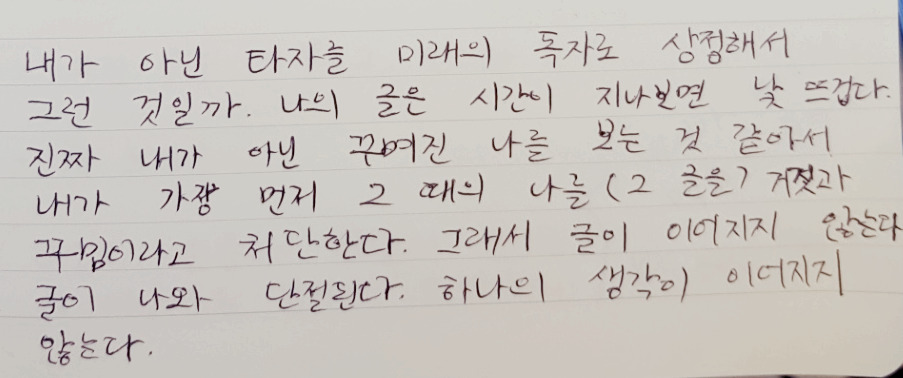 내가 아닌 타자를 미래의 독자로 상정해서
그런 것일까. 나의 글은 시간이 지나보면 낯 뜨겁다.
진짜 내가 아닌 꾸며진 나를 보는 것 같아서
내가 가장 먼저 그 때의 나를(그 글을) 거짓과
꾸밈이라고 처단한다. 그래서 글이 이어지지 않는다
글이 나와 단절된다. 하나의 생각이 이어지지
않는다.